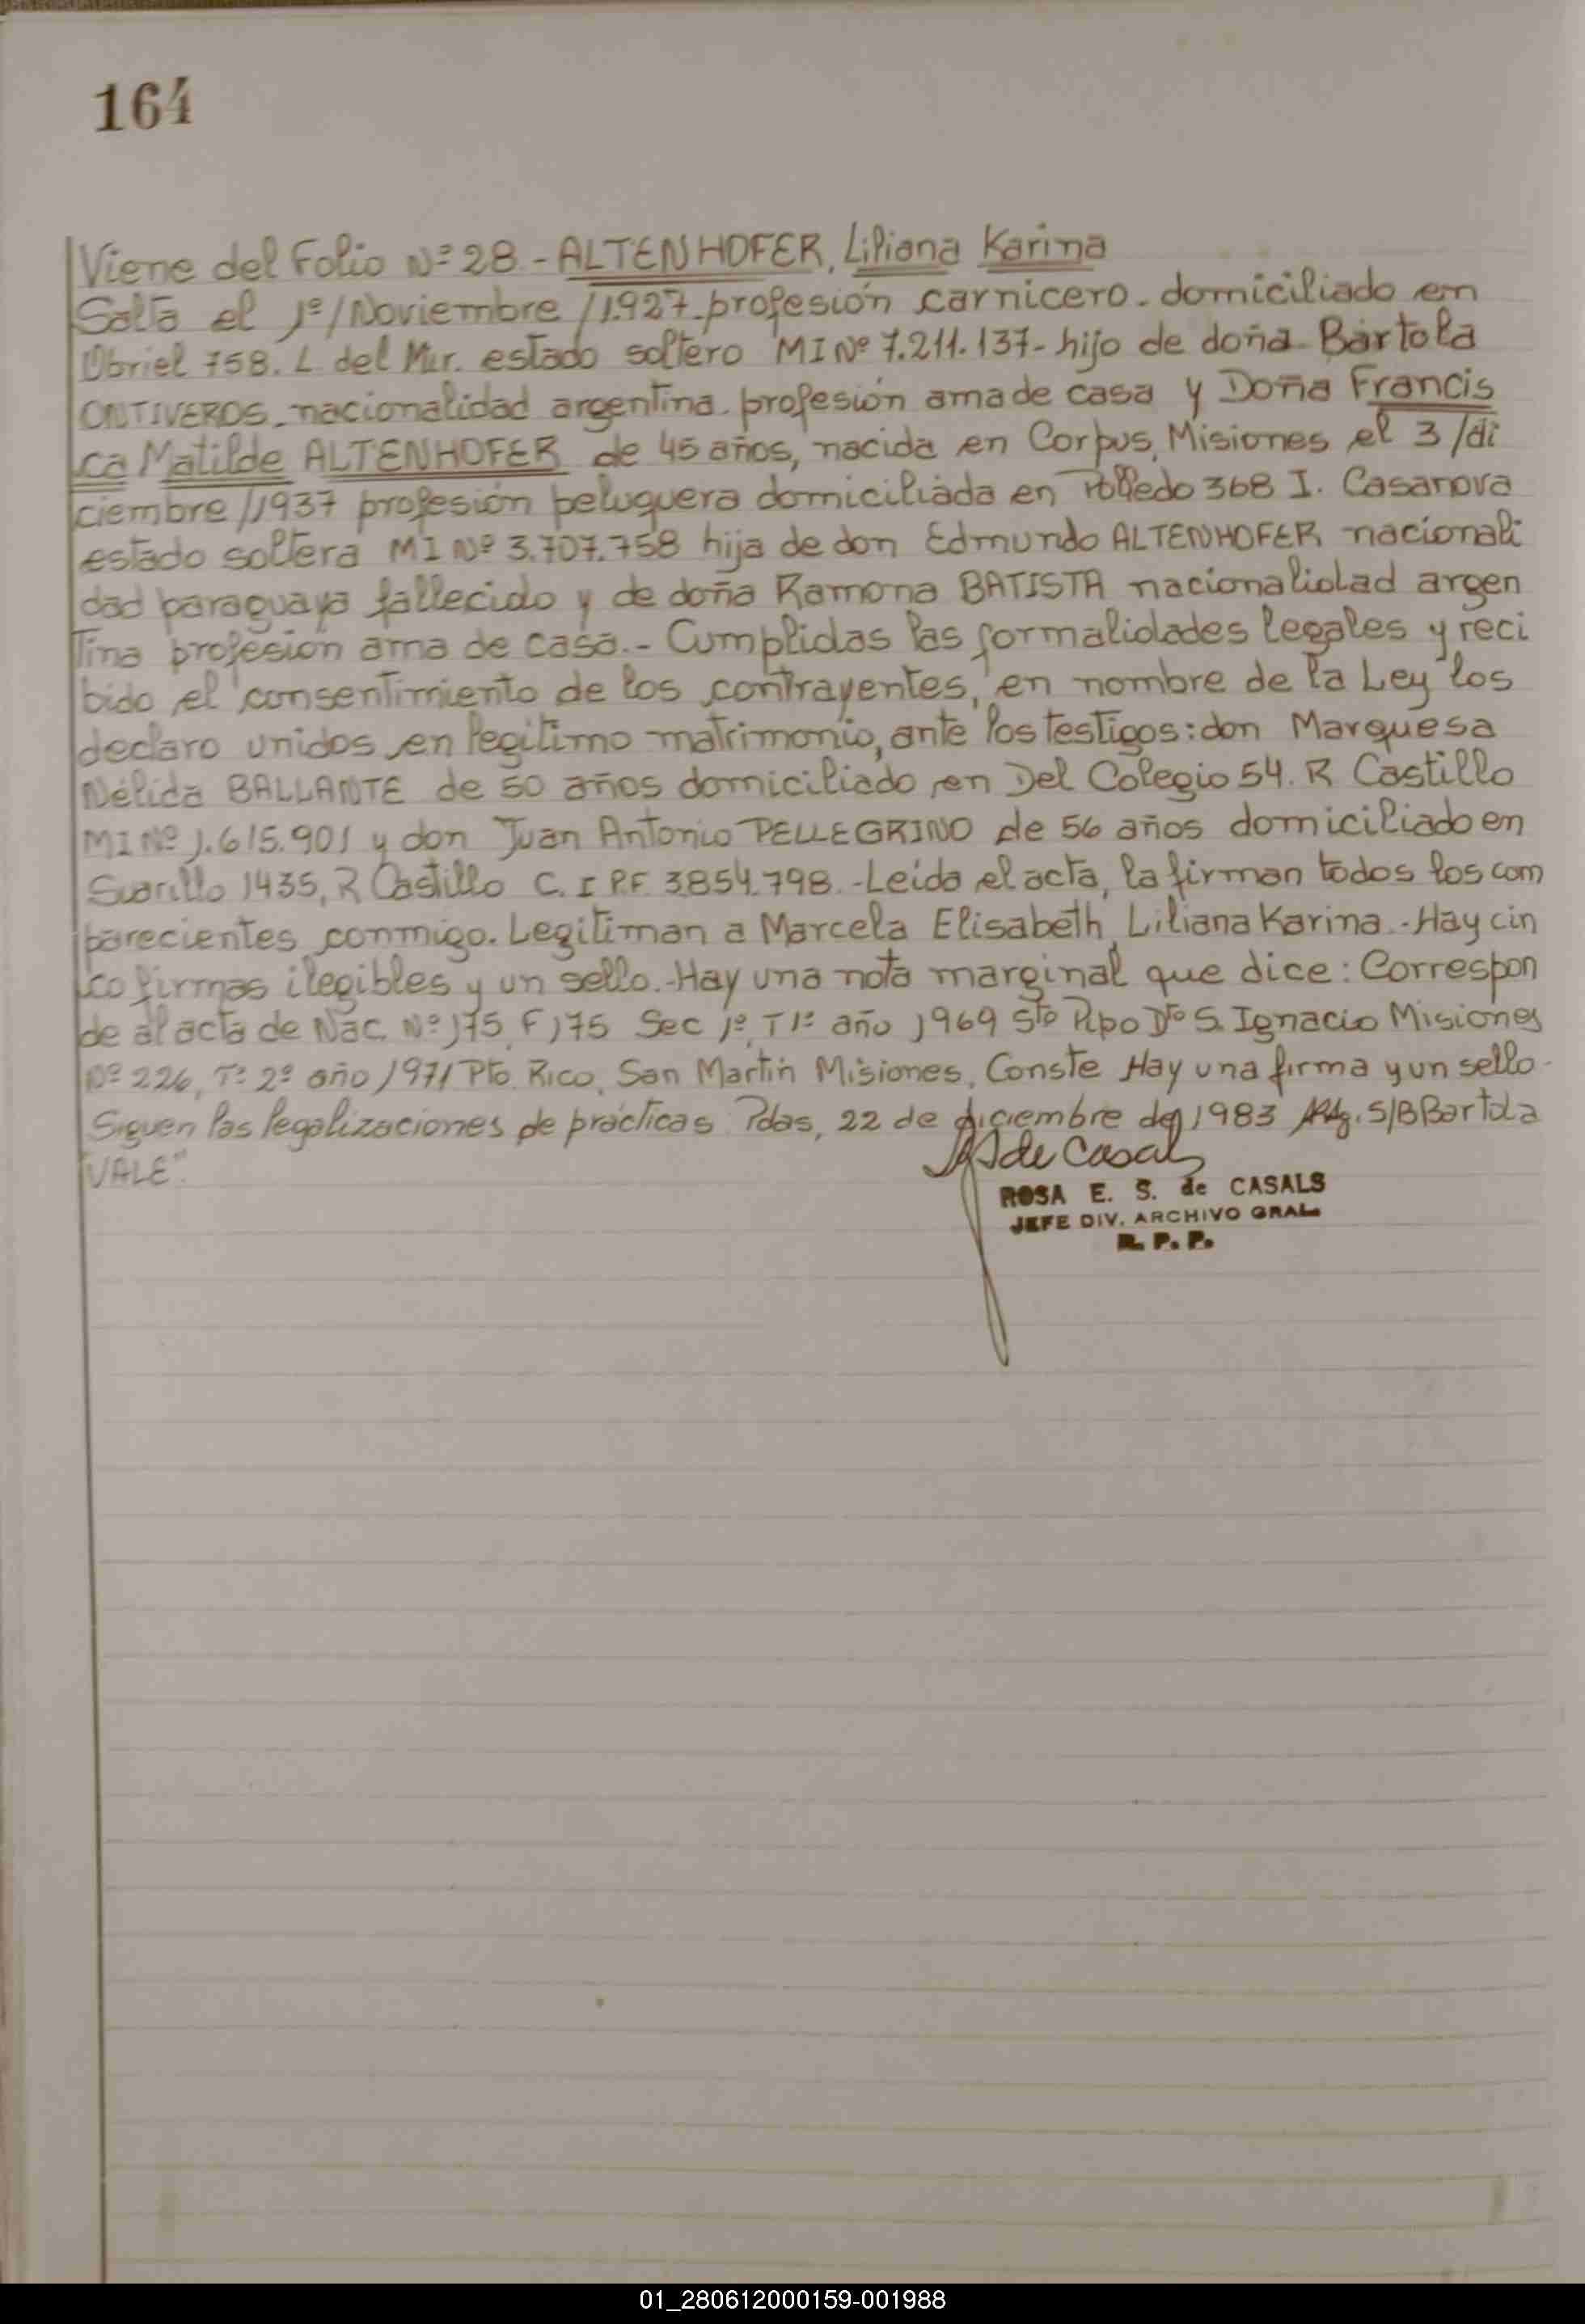 164
Viene del Folio Nº 28 - ALTENHOFER, Liliana Karina
Salta el 1º/Noviembre/1.927. profesión carnicero. domiciliado en
Obriel 758. L. del Mir. estado soltero MI Nº 7.211.137- hijo de doña Bartola
ONTIVEROS. nacionalidad argentina. profesión ama de casa y Doña Francis
ca Matilde ALTENHOFER de 45 años, nacida en Corpus, Misiones el 3/di
ciembre/1937 profesión peluquera domiciliada en Polledo 368 I. Casanova
estado soltera MI Nº 3.707.758 hija de don Edmundo ALTENHOFER nacionali
dad paraguaya fallecido y de doña Ramona BATISTA nacionalidad argen
tina profesión ama de casa.- Cumplidas las formalidades legales y reci
bido el consentimiento de los contrayentes, en nombre de la Ley los
declaro unidos en legitimo matrimonio, ante los testigos: don Marquesa
Nélida BALLANTE de 50 años domiciliado en Del Colegio 54. R Castillo
MI Nº 1.615.901 y don Juan Antonio PELLEGRINO de 56 años domiciliado en
1435, R Castillo C. I P.F. 3.854.798.-Leída el acta, la firman todos los com
parecientes conmigo. Legitiman a Marcela Elisabeth, Liliana Karina.-Hay cin
co firmas ilegibles y un sello.-Hay una nota marginal que dice: Correspon
de al acta de Nac. Nº 175, F 175 Sec 1º, T 1º año 1969 Sto Pipo Dto S. Ignacio Misiones
Nº 226, Tº 2º año 1971 Pto. Rico, San Martín Misiones, Conste Hay una firma y un sello-
Siguen las legalizaciones de prácticas. Pdas, 22 de diciembre de 1983 S/B Bartola
VALE".
de Casals
ROSA E. S. de CASALS
JEFE DIV. ARCHIVO GRAL.
R. P. P.
01_280612000159-001988